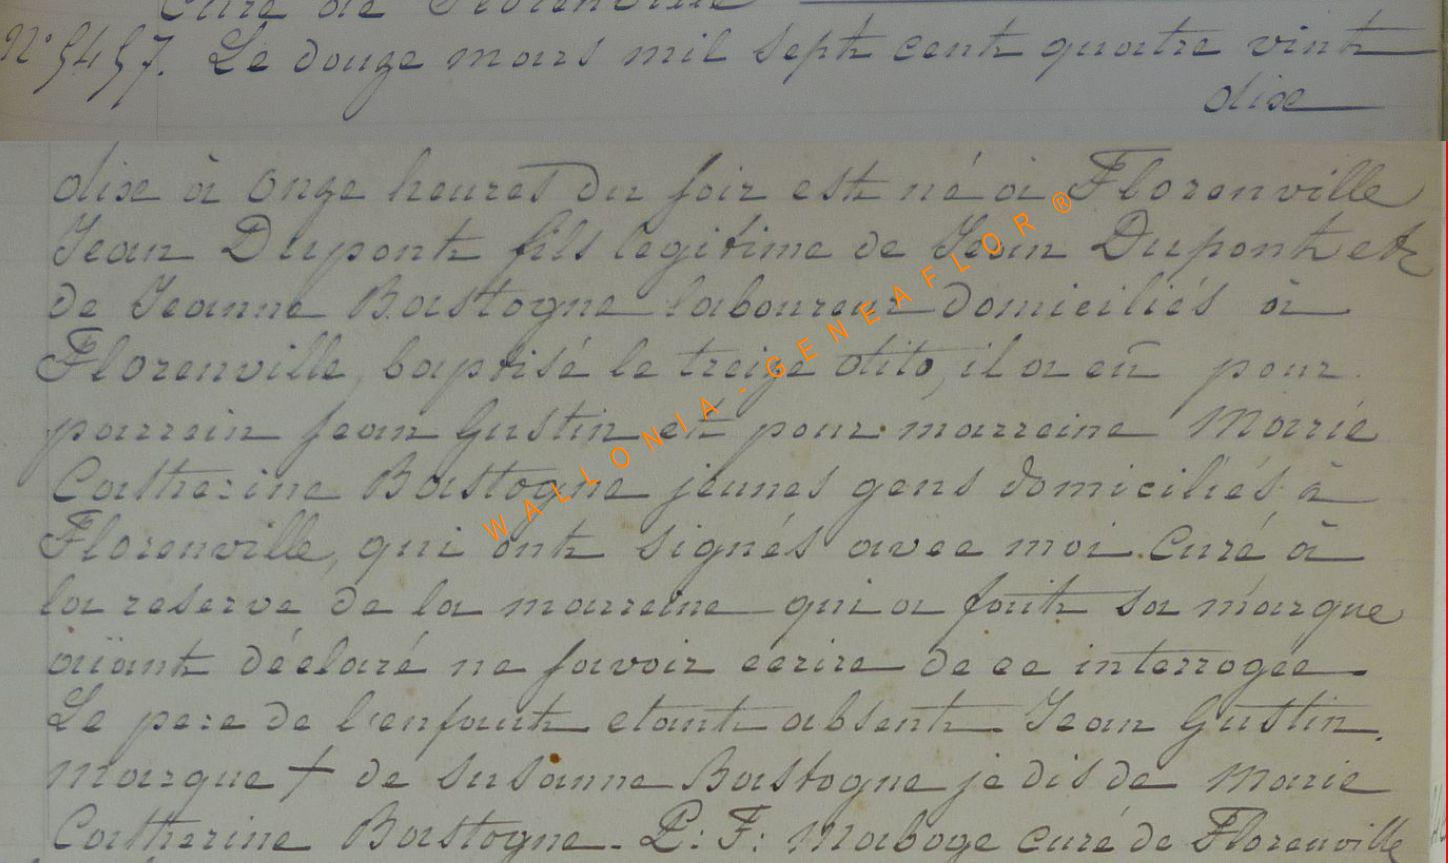 Curé de Florenville
N° 5457. Le douze mars mil sept cent quatre vint
dix
dix à onze heures du soir est né à Florenville
Jean Dupont fils legitime de Jean Dupont et
de Jeanne Bastogne laboureur domiciliés à
Florenville, baptisé le treize dito, il a eu pour
parrain jean Gustin et pour marraine Marie
Catherine Bastogne jeunes gens domiciliés à
Florenville, qui ont signés avec moi Curé à
la reserve de la marreine qui a fait sa marque
aiant déclaré ne savoir ecrire de ce interrogee
Le pere de l'enfant etant absent. Jean Gustin.
Marque + de Susanne Bastogne je dis de Marie
Catherine Bastogne. P: F: Maboge curé de Florenville
WALLONIA - GENEAFLOR ®